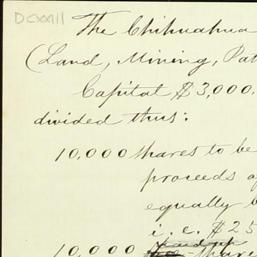 Dcxxxii
The Chihuahua
(Land, Mining, Pat
Capital $3,000.
divided thus:
10,000 shares to be
proceeds o
equally b
i.e. $25
paid up
10,000 the shares